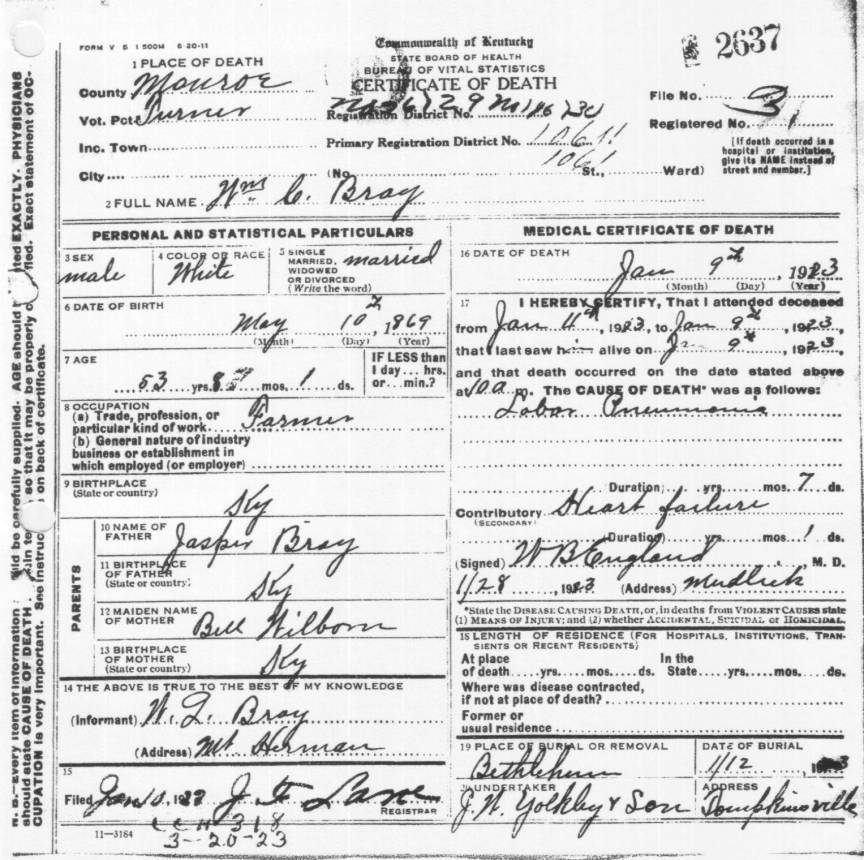 FORM V S 1 500M 6-20-11
Commonwealth of Kentucky
STATE BOARD OF HEALTH
BUREAU OF VITAL STATISTICS
CERTIFICATE OF DEATH
2637
1 PLACE OF DEATH
County Monroe
Vot. Pct. Turner
Inc. Town
City
Registration District No.
Primary Registration District No. 1061
1061
(No. St., Ward)
File No. 3
Registered No. 1
[If death occurred in a
hospital or institution,
give its NAME instead of
street and number.]
2 FULL NAME Wm C. Bray
PERSONAL AND STATISTICAL PARTICULARS
3 SEX
male
4 COLOR OR RACE
White
5 SINGLE
MARRIED,
WIDOWED
OR DIVORCED
(Write the word)
married
6 DATE OF BIRTH
May 10th, 1869
(Month) (Day) (Year)
7 AGE
53 yrs. 8 mos. 1 ds.
IF LESS than
1 day... hrs.
or... min.?
8 OCCUPATION
(a) Trade, profession, or
particular kind of work Farmer
(b) General nature of industry
business or establishment in
which employed (or employer)
9 BIRTHPLACE
(State or country)
Ky
PARENTS
10 NAME OF
FATHER
Jasper Bray
11 BIRTHPLACE
OF FATHER
(State or country)
Ky
12 MAIDEN NAME
OF MOTHER
Bell Wilborn
13 BIRTHPLACE
OF MOTHER
(State or country)
Ky
14 THE ABOVE IS TRUE TO THE BEST OF MY KNOWLEDGE
(Informant) Bray
(Address) Mt Herman
15
Filed Jan 10, 192
REGISTRAR
318
3-20-23
11-3184
MEDICAL CERTIFICATE OF DEATH
16 DATE OF DEATH
Jan 9th, 1923
(Month) (Day) (Year)
17 I HEREBY CERTIFY, That I attended deceased
from Jan 4th, 1923, to Jan 9th, 1923,
that I last saw him alive on Jan 9th, 1923,
and that death occurred on the date stated above
at 10 a m. The CAUSE OF DEATH* was as follows:
Lobar Pneumonia
Duration; yrs. mos. 7 ds.
Contributory Heart failure
(SECONDARY)
(Duration) yrs. mos. 1 ds.
(Signed) W B England, M. D.
1/28, 1923 (Address) Mudlick
*State the DISEASE CAUSING DEATH, or, in deaths from VIOLENT CAUSES state
(1) MEANS OF INJURY; and (2) whether ACCIDENTAL, SUICIDAL or HOMICIDAL.
18 LENGTH OF RESIDENCE (FOR HOSPITALS, INSTITUTIONS, TRAN-
SIENTS OR RECENT RESIDENTS)
At place In the
of death yrs. mos. ds. State yrs. mos. ds.
Where was disease contracted,
if not at place of death?
Former or
usual residence
19 PLACE OF BURIAL OR REMOVAL
Bethlehem
DATE OF BURIAL
1/12
20 UNDERTAKER
& Son
ADDRESS
Tompkinsville